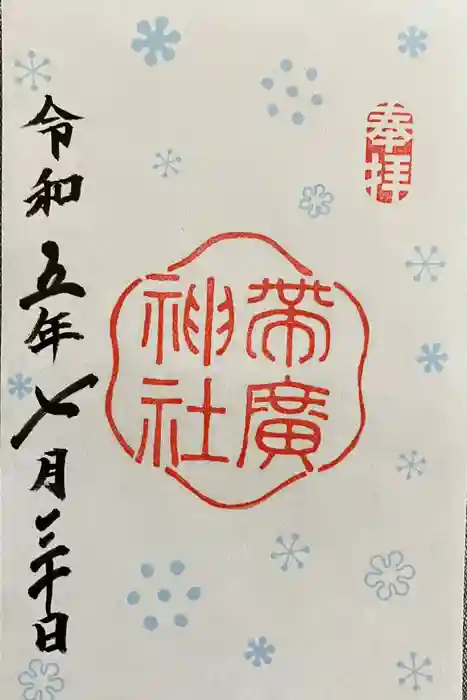 奉拝
帯廣
神社
令和五年七月三十日